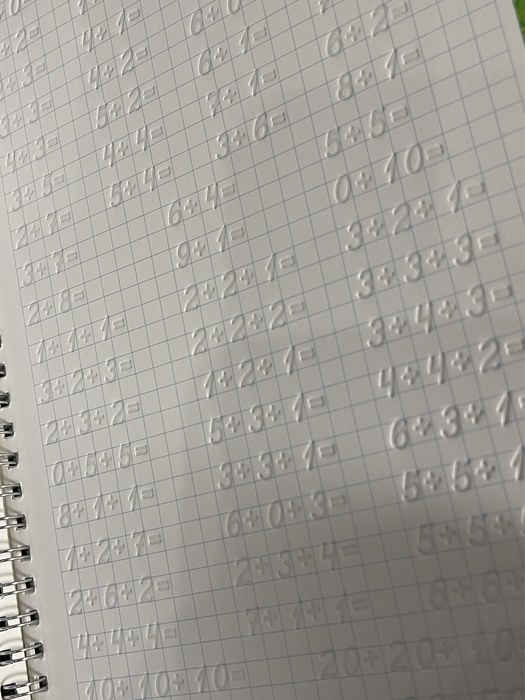 +2=
+3=
3+3=
4+3=
3+5=
2+7=
3+7=
2+8=
1+1+1=
3+2+3=
2+3+2=
0+5+5=
8+1+1=
1+2+7=
2+6+2=
4+4+4=
10+10+10=
4+1=
4+2=
5+2=
4+4=
5+4=
6+0
6+1=
7+1=
3+6=
6+4=
9+1=
2+2+1=
2+2+2=
1+2+1=
5+3+1=
3+3+1=
6+0+3=
2+3+4=
7+1+1=
20+20+10
6+2=
8+1=
5+5=
0+10=
3+2+1=
3+3+3=
3+4+3=
4+4+2=
6+3+1=
5+5+1
5+5+
6+6+